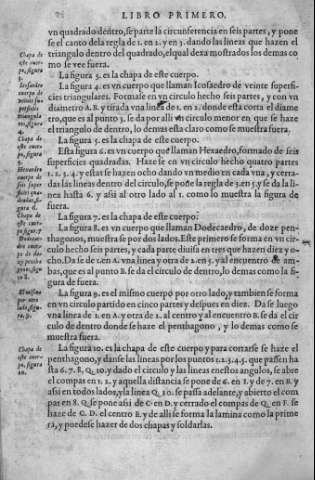 LIBRO PRIMERO.
vn quadrado dentro, separte la circunferencia en seis partes, y pone
se el canto de la regla de 1. en 2. y en 3. dando las lineas que hazen el
triangulo dentro del quadrado, el qual dexa mostrados los demas co
mo se vee fuera.
La figura 3. es la chapa de este cuerpo.
La figura 4. es vn cuerpo que llaman Icosaedro de veinte superfi-
cies triangulares. Formase en vn circulo hecho seis partes, y con vn
diametro A. B. y tirada vna linea de 1. en 2. donde esta corta el diame
tro, que es al punto 3. se da por alli vn circulo menor en que se haze
el triangulo de dentro, lo demas esta claro como se muestra fuera.
La figura 5. es la chapa de este cuerpo.
La figura 6. es vn cuerpo que llaman Hexaedro, formado de seis
superficies quadradas. Haze se en vn circulo hecho quatro partes
1. 2. 3. 4. y estas se hazen ocho dando vn medio en cada vna, y cerra-
das las lineas dentro del circulo, se pone la regla de 3. en 5. y se da la li
nea hasta 6. y assi al otro lado al 1. como lo muestra la figura de
fuera.
La figura 7. es la chapa de este cuerpo.
La figura 8. es vn cuerpo que llaman Dodecaedro, de doze pen-
thagonos, muestra se por dos lados. Este primero se forma en vn cir
culo hecho seis partes, y cada parte diuisa en tres que hazen diez y o-
cho. Da se de 1. en A. vna linea y otra de 2. en 3. y al encuentro de am-
bas, que es al punto B. se da el circulo de dentro, lo demas como la fi-
gura de fuera.
La figura 9. es el mismo cuerpo por otro lado, y tambien se forma
en vn circulo partido en cinco partes y despues en diez. Da se luego
vna linea de 1. en A. y otra de 2. al centro y al encuentro B. se da el cir
culo de dentro donde se haze el penthagono, y lo demas como se
muestra fuera.
La figura 10. es la chapa de este cuerpo y para cortarse se haze el
penthagono, y danse las lineas por los puntos 1. 2. 3. 4. 5. que passen hasta
6. 7. 8. Q. 10. y dado el circulo y las lineas en estos angulos, se abre
el compas en 1. 2. y aquella distancia se pone de 6. en 1. y de 7. en B. y
assi en todos lados, y la linea Q. 10. se passa adelante, y abierto el com
pas en 8. Q. se pone assi de C. en D. y cerrado el compas de Q. en F. se
haze de C. D. el centro E. y de alli se forma la lamina como la prime
ra, y puedese hazer de dos chapas y soldarlas.
Chapa de
este cuer
po, figura
3.
Icosaedro
cuerpo de
veinte su
perficies
triangula
res, figura
4.
Chapa de
este cuer
po, figura
5.
Hexaedro
cuerpo de
seis super
ficies qua
dradas, fi
gura 6.
Chapa de
este cuer
po, figu. 7
El mismo
por otro
lado, figu
ra. 9.
Chapa de
este cuer
po, figura
10.